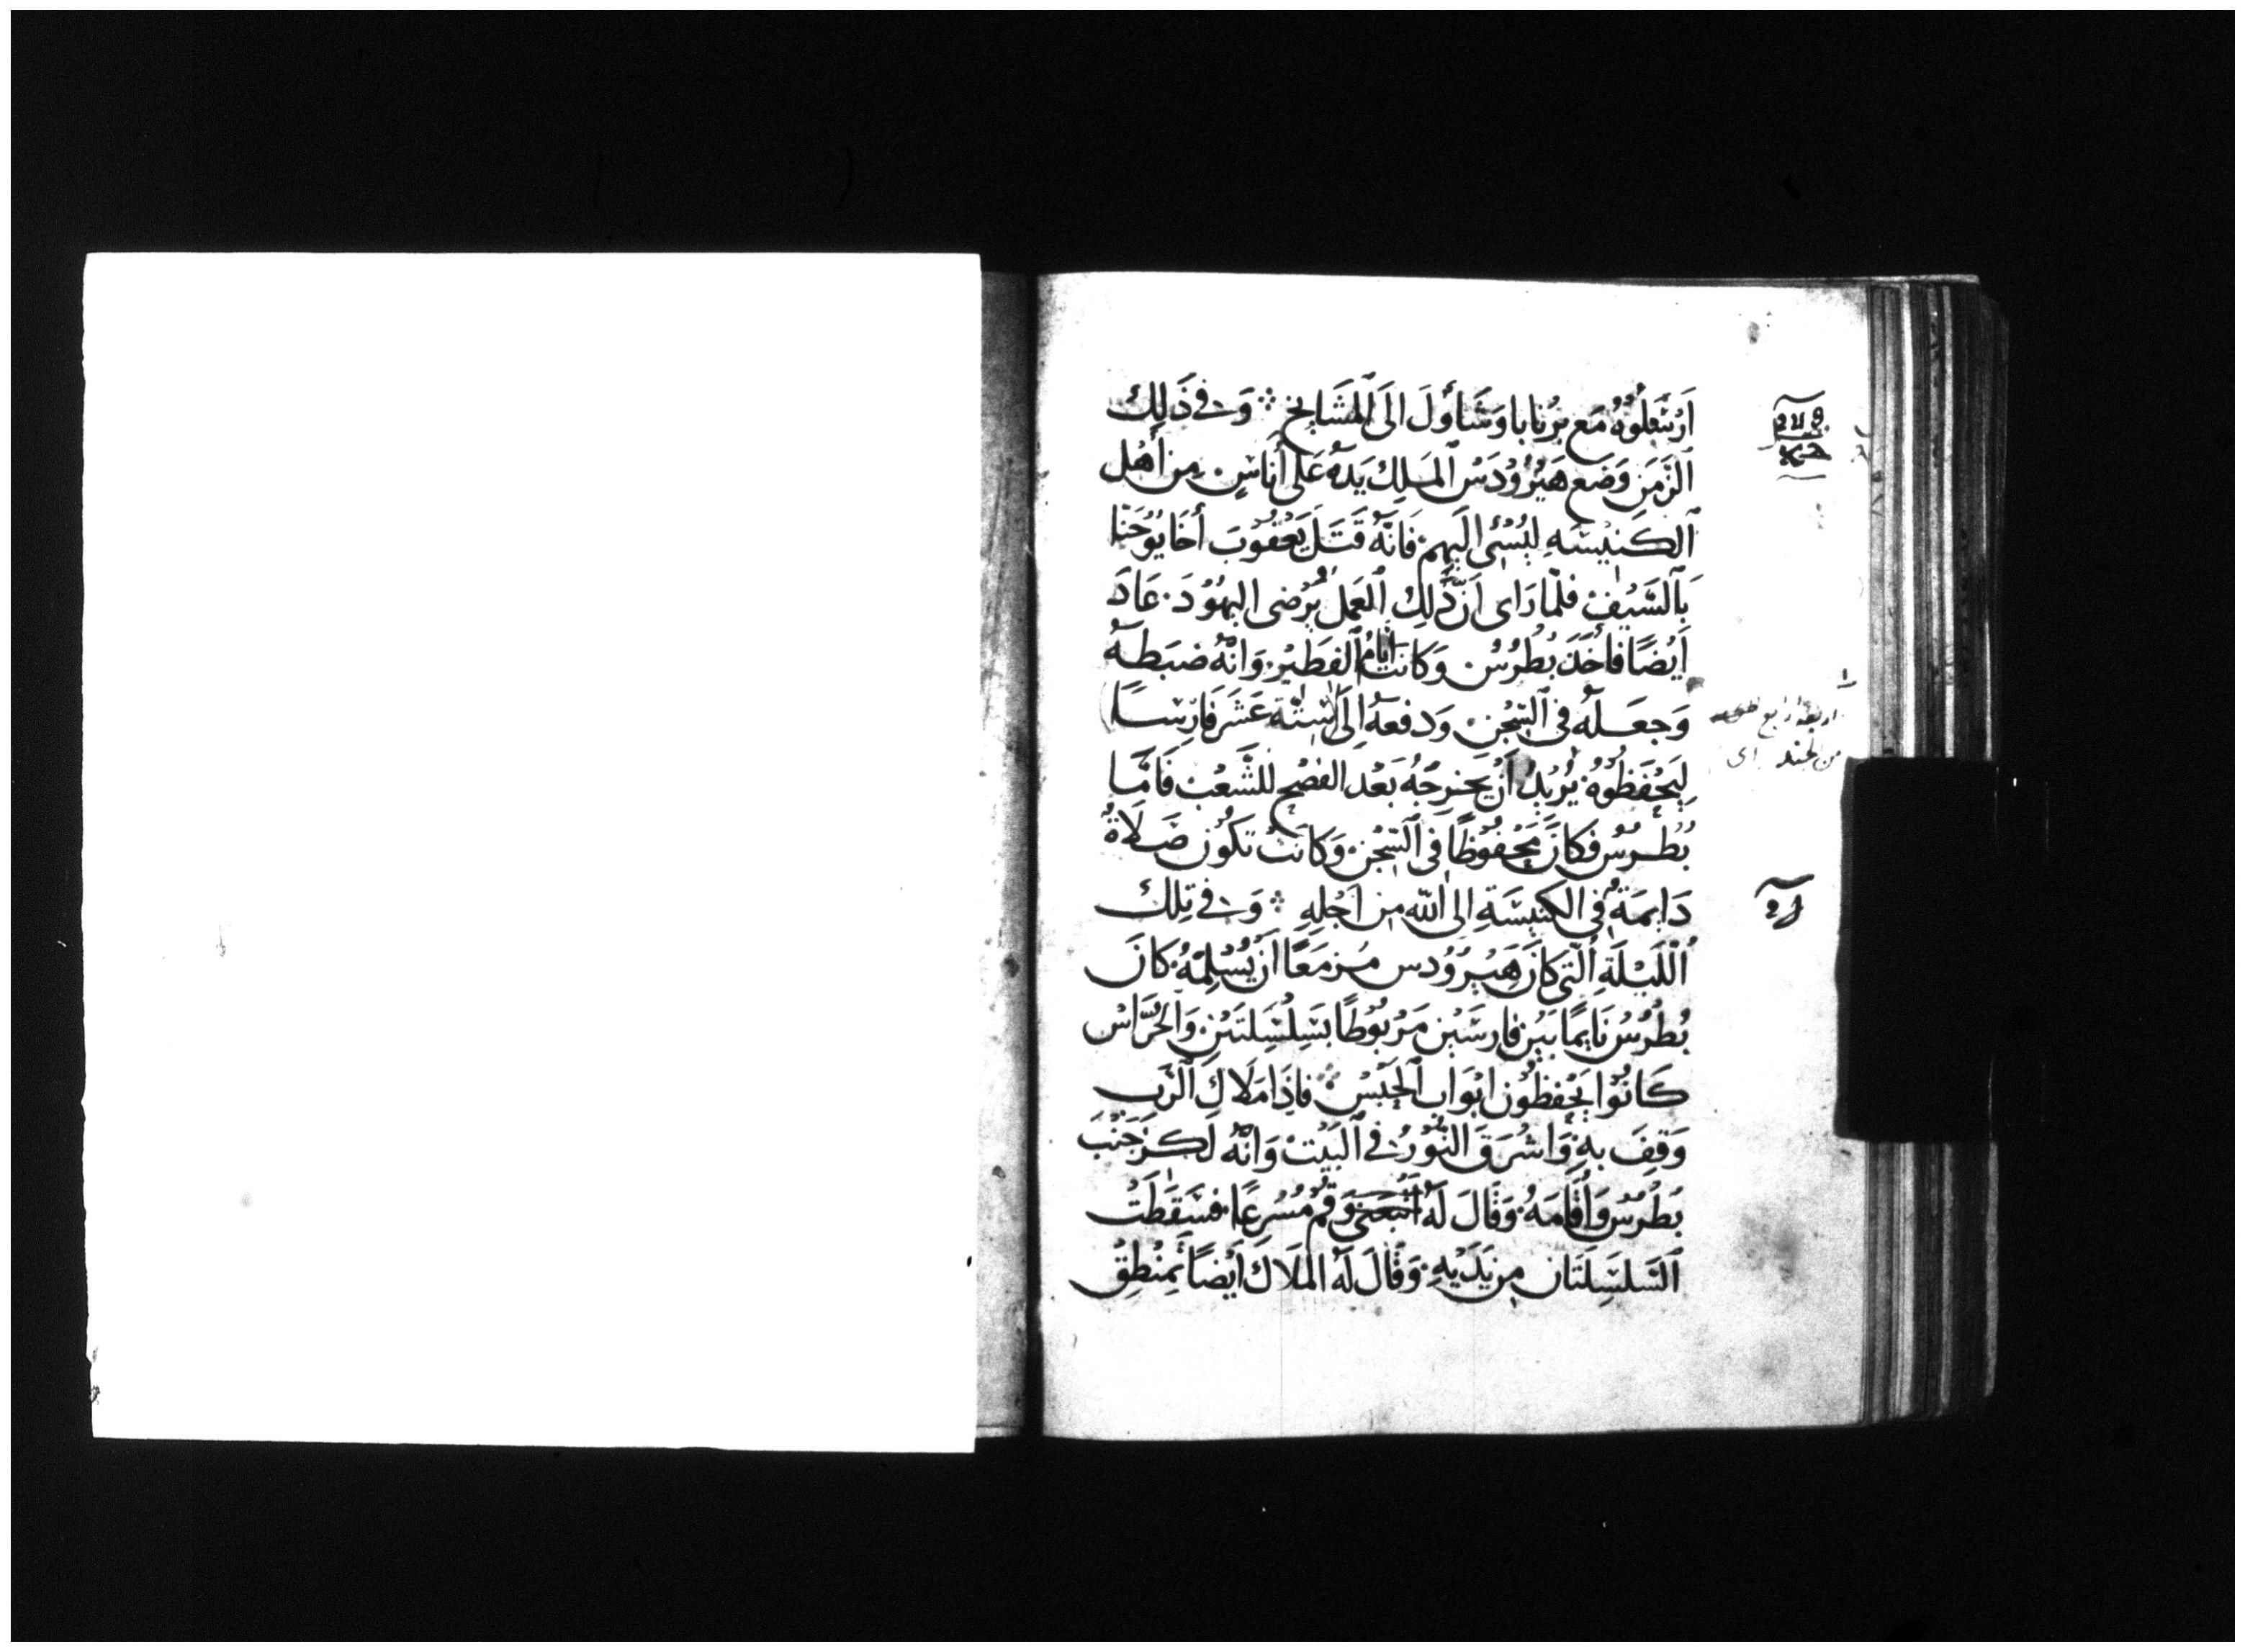 اَرْسَلُوهُ مَع بَرْنَابا وَشَاوُلَ الَى ٱلْمَشَايخِ ܀ وَفى ذَلِكَ
ٱلزَمَنِ وَضَع هَيْرُوُدَسُ ٱلمَلِكُ يَدَهُ عَلى أُنَاسٍ مِن أَهْلِ
ٱلكَنيْسَهِ ليُسْئ اليَهِم۬ فَانَّهُ قَتَلَ يَعْقُوْبَ أَخَا يُوْحَنّا
بِالسَيْفِ فَلمّا رَاى اَنَّ ذَلِكَ ٱلعَمَلَ يُرْضى اليهُوُدَ. عَادَ
اَيْضًا فأَخَذَ بُطْرُسُ. وَكانَت اَيامُ ٱلفَطيْرِ. وَانّهُ ضبَطَهُ
وَجعَلَهُ فى ٱلسِّجْنِ. وَدفعهُ اِلَى سِتَّة عَشَرَ فَارِسًا
لِيَحْفَظُوْهُ. يُرْيدُ أَنْ يُخرِجَهُ بَعْدَ الفصْحِ للشَّعْبِ فَامَّا
بُطْرُسُ فكانَ مَحْفُوْظًا فى ٱلسّجْنِ. وَكَانَتْ تَكُوْن صَلَاةٌ
دَايمَةٌ فى الكَنيسَةِ الى اللّه مِن اَجْلِهِ ܀ وَفى تِلكَ
ٱللّيْلَةِ ٱلّتى كانَ هَيْرُوُدس مُزمَعًا اَنْ يُسْلِمَهُ. كانَ
بُطْرُسُ نَايمًا بَيْنَ فارسَيْن مَرْبُوْطًا بسِلْسِلتَيْنِ وَالحُرَّاسُ
كَانُوْا يَحْفظُون ابْوَابَ ٱلحَبْسِ ܀ فاذَا مَلَاك ٱلرَّب
وَقِفَ بهِ. وَاشْرَقَ النُّوْرُ فى ٱلبَيْتِ وَانَّهُ لَكزَ جَنْبَ
بُطْرُسَ وَاقَامَهُ. وَقَالَ لَهُ اتْبَعَنى وَقُمْ مُسْرِعًا. فسَقَطَتْ
ٱلسّلسِلَتَانِ مِن يَدَيْهِ. وَقَالَ لَهُ المَلَاك اَيْضًا تَمَنْطِقْ
اربعة ارابع
من الجند اى